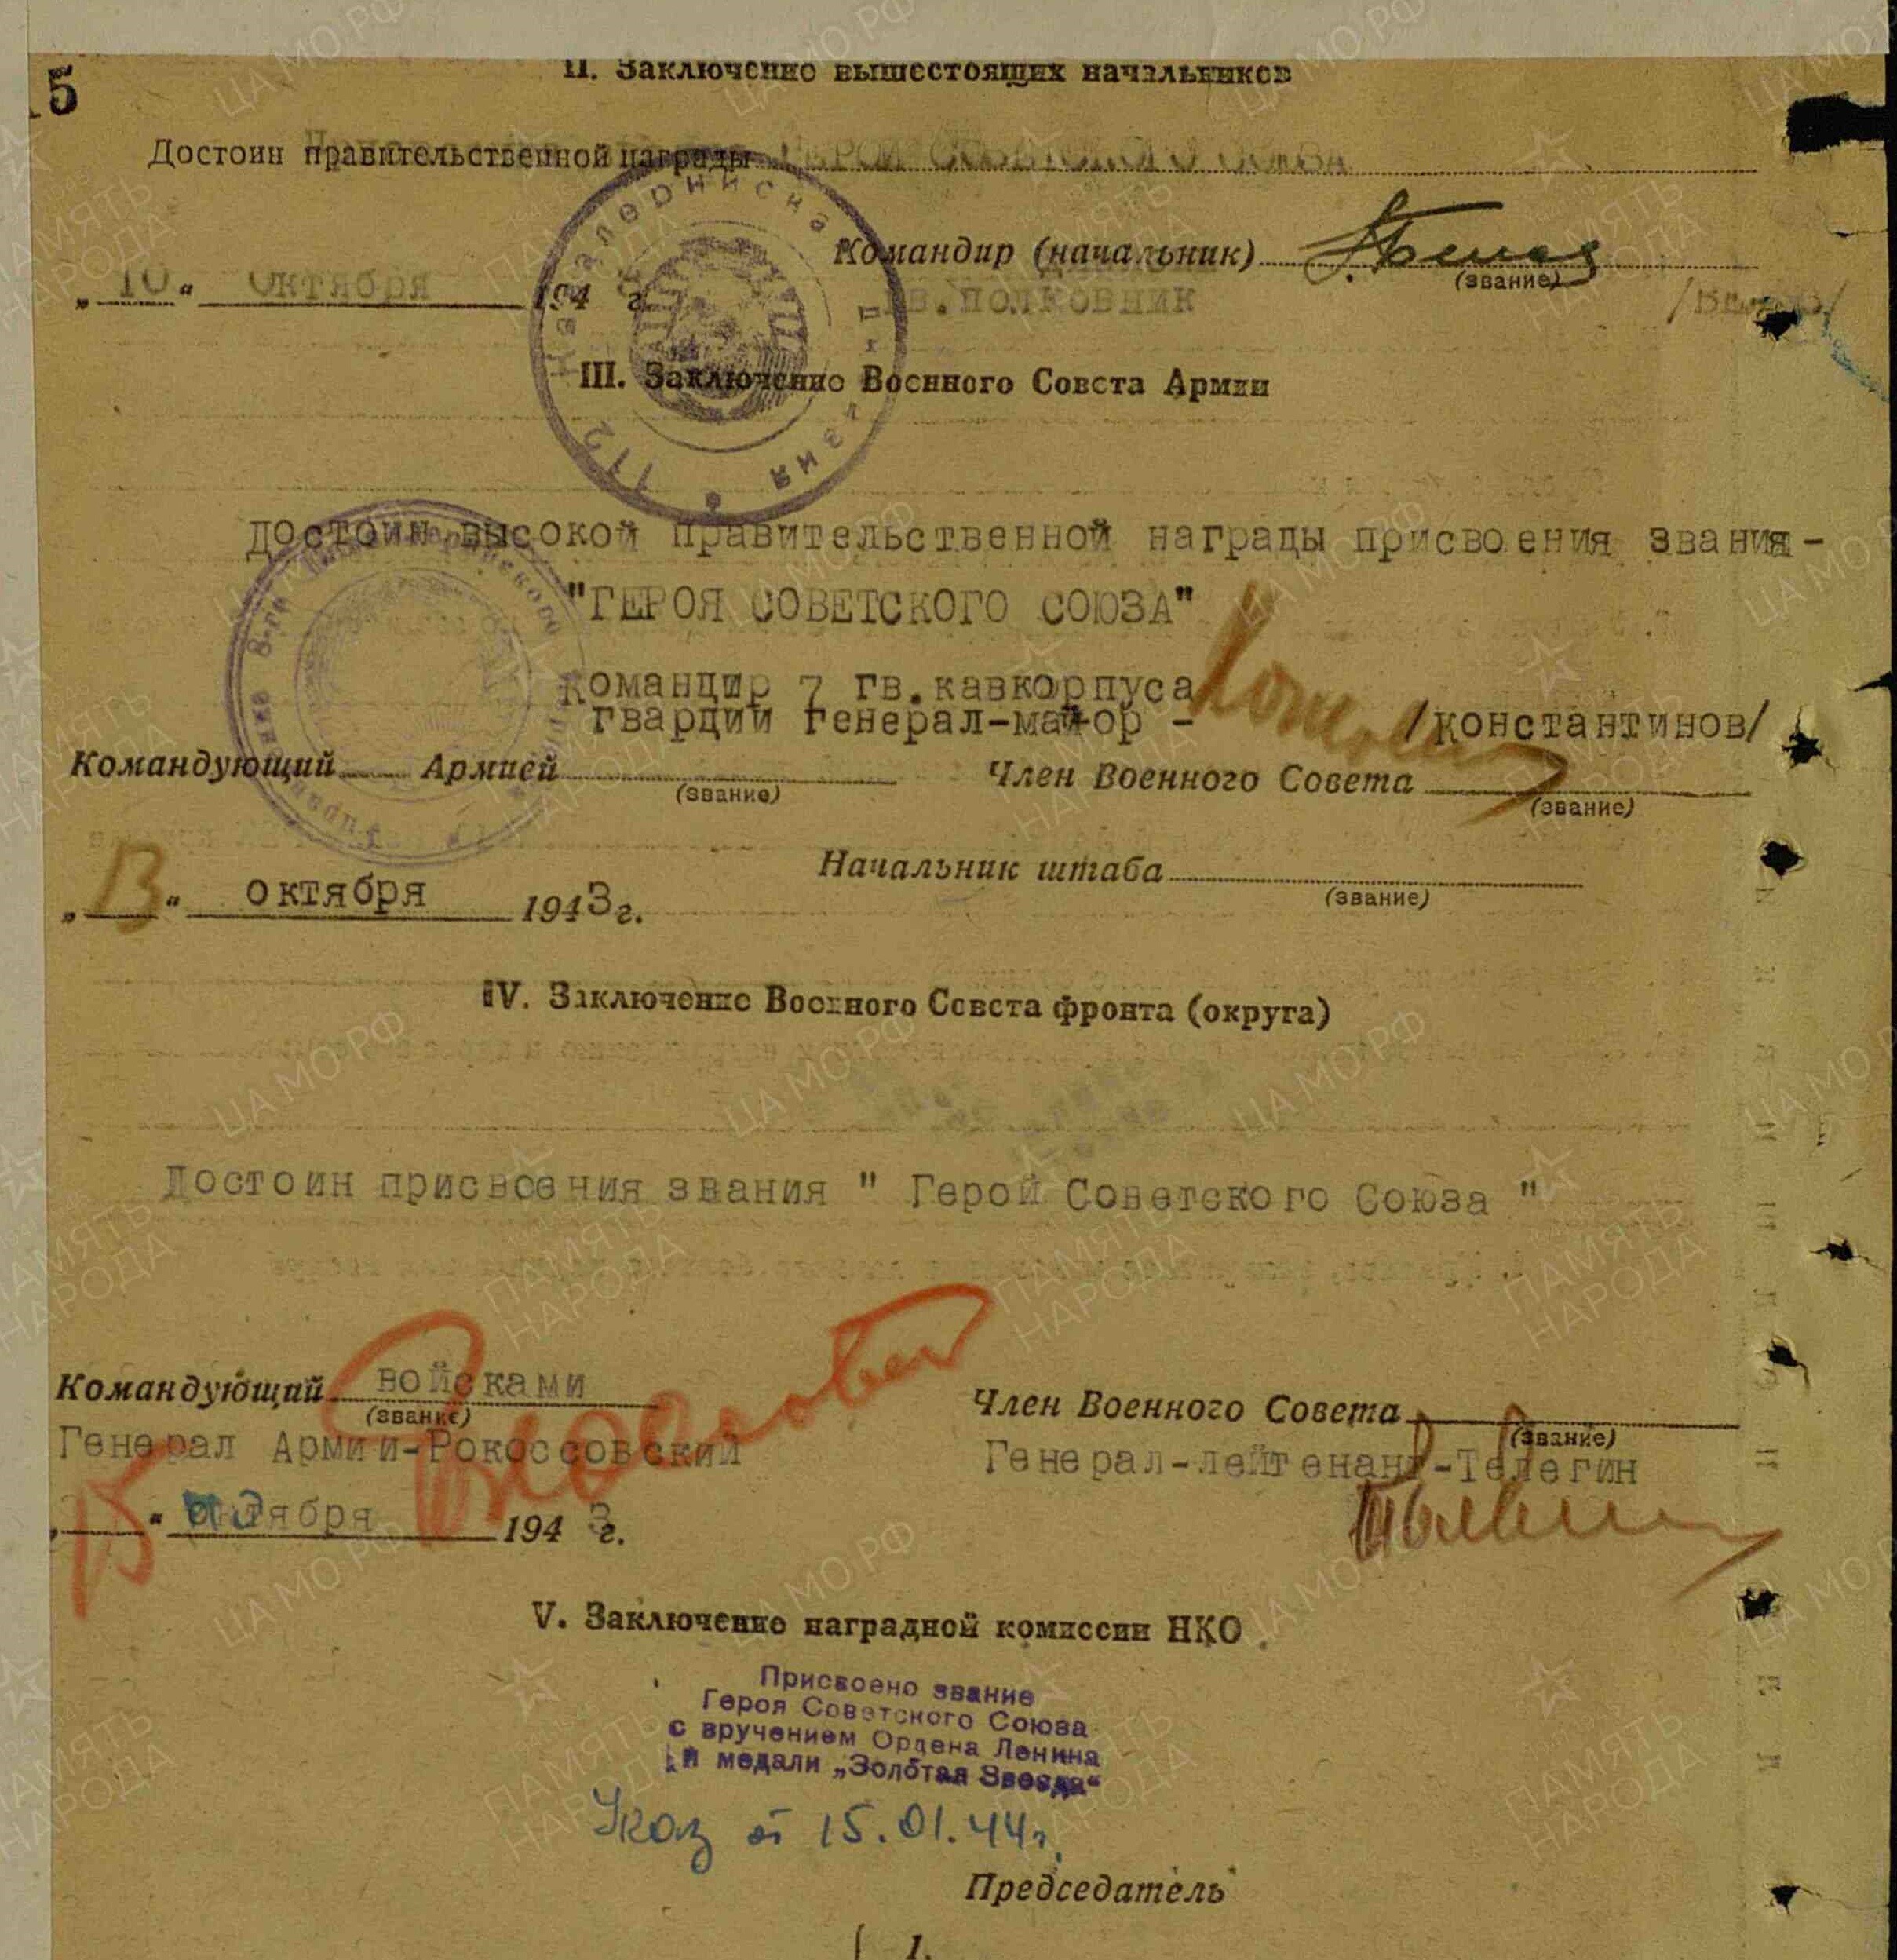 15
II. Заключение вышестоящих начальников
Достоин правительственной награды ГЕРОЙ СОВЕТСКОГО СОЮЗА
Командир (начальник)
(звание)
„10“ октября 194 г.
гв. полковник /Белов/
Кавалерийская дивизия 112
III. Заключение Военного Совета Армии
достоин высокой правительственной награды присвоения звания-
"ГЕРОЯ СОВЕТСКОГО СОЮЗА"
командир 7 гв.кавкорпуса
гвардии генерал-майор - /константинов/
Командующий Армией
(звание)
Член Военного Совета
(звание)
Начальник штаба
(звание)
„13“ октября 1943 г.
IV. Заключение Военного Совета фронта (округа)
Достоин присвоения звания " Герой Советского Союза "
Командующий войсками
(звание)
Генерал Армии-Рокоссовский
Член Военного Совета
(звание)
Генерал-лейтенант-Телегин
15 “ октября 1943 г.
V. Заключение наградной комиссии НКО
Присвоено звание
Героя Советского Союза
с вручением Ордена Ленина
и медали „Золотая Звезда“
Указ от 15.01.44г.
Председатель
1.
ЦА МО РФ
ПАМЯТЬ НАРОДА